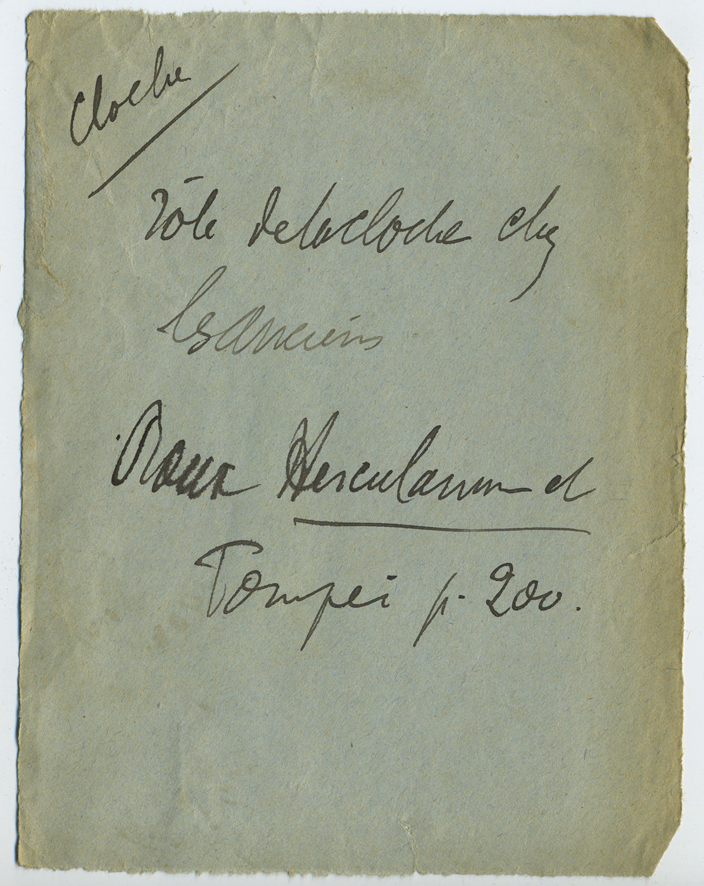 Cloche
rôle de la cloche chez
les Anciens
Roux Herculanum et
Pompei p. 200.